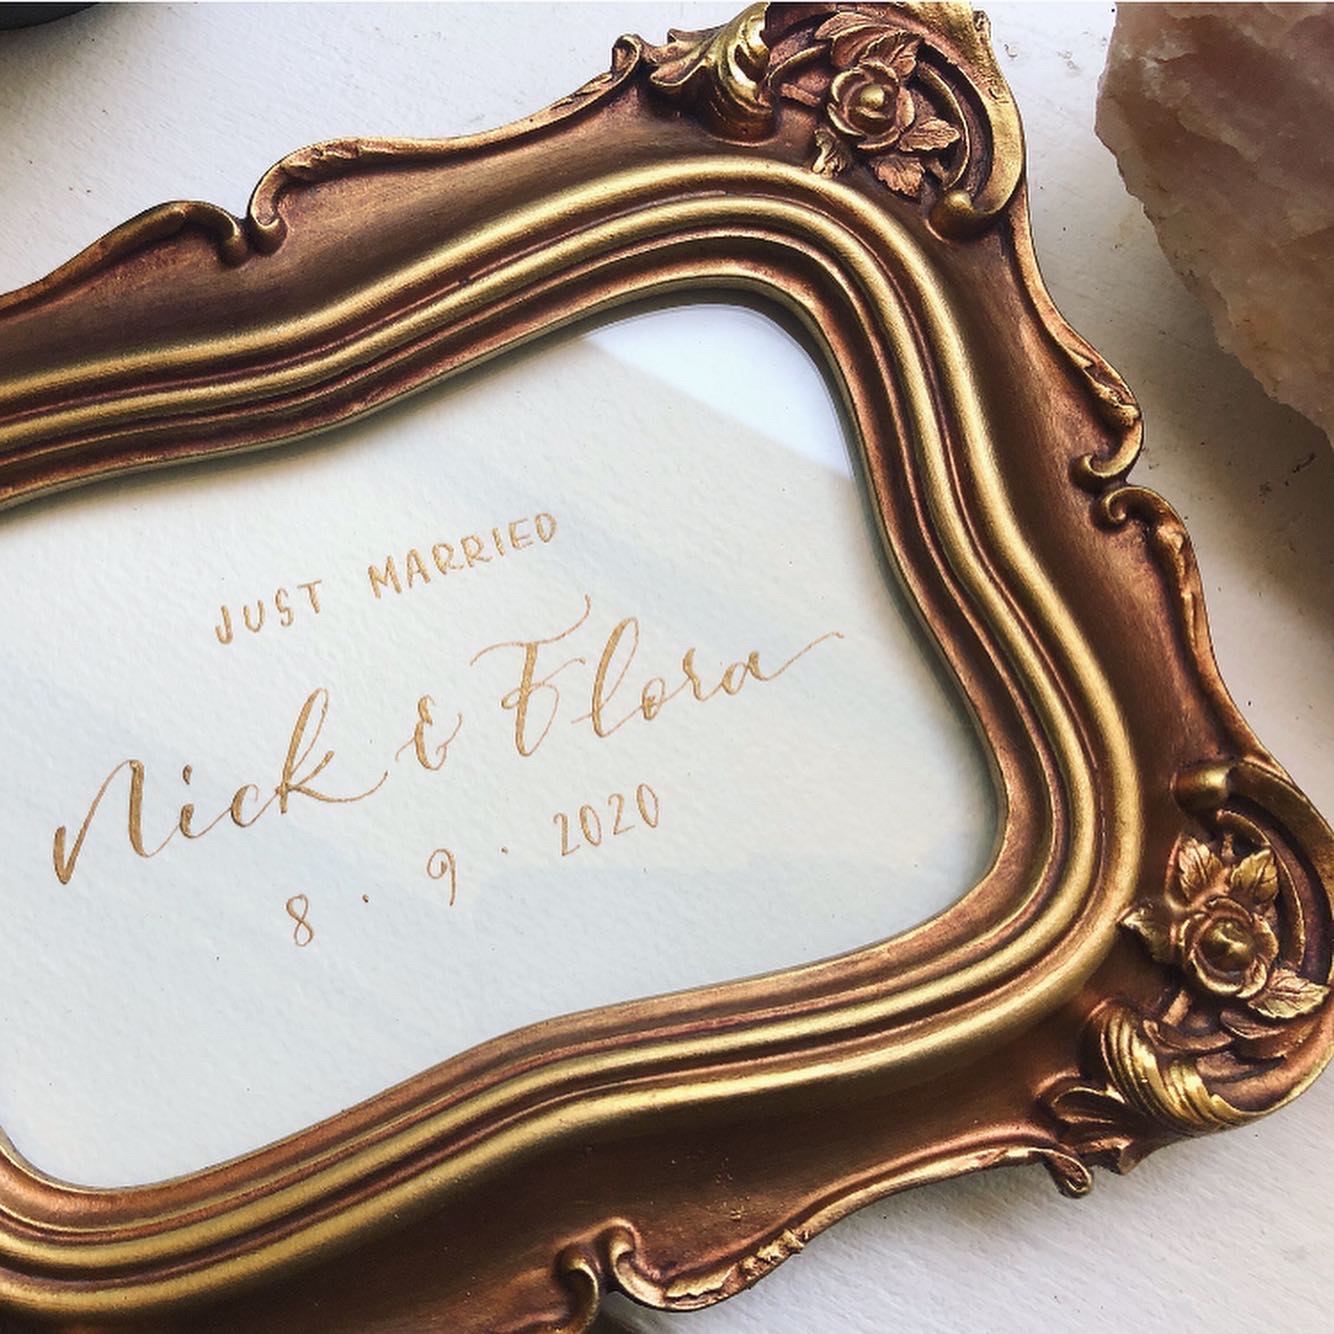 JUST MARRIED
Nick & Flora
8 · 9 · 2020